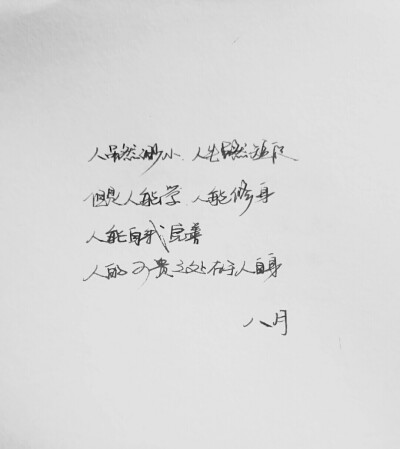 人虽然渺小 人生虽然短促
但是人能学 人能修身
人能自我完善
人的可贵之处在于人自身
八月